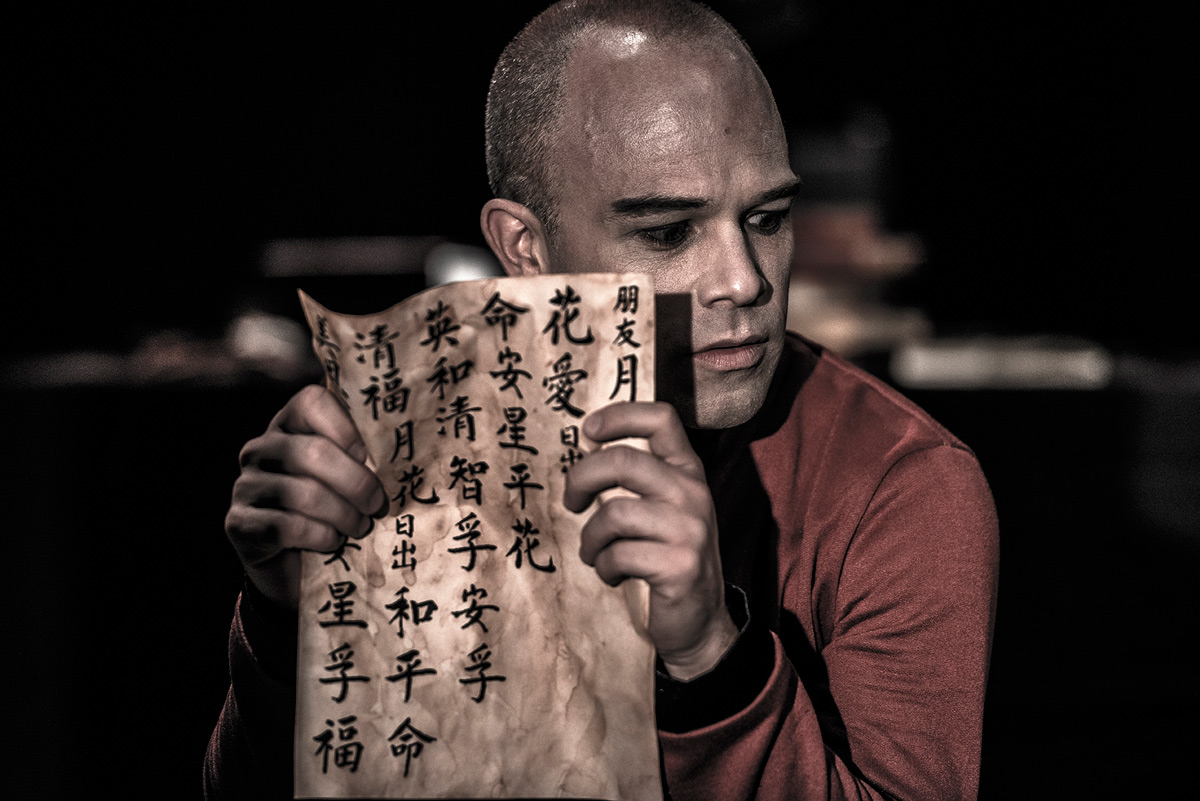 朋友月
花愛日出
命安星平花
英和清智孚安孚
清福月花日出和平命
美
安星孚福